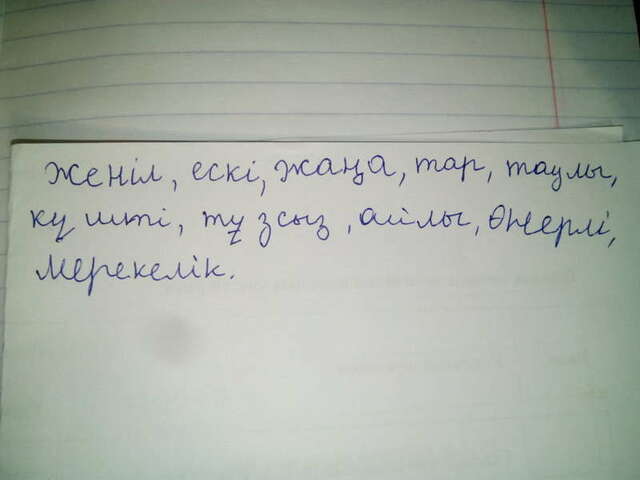 Женіл, ескі, жаңа, тар, таулы,
күшті, тұзсыз, айлы, өнерлі,
мерекелік.